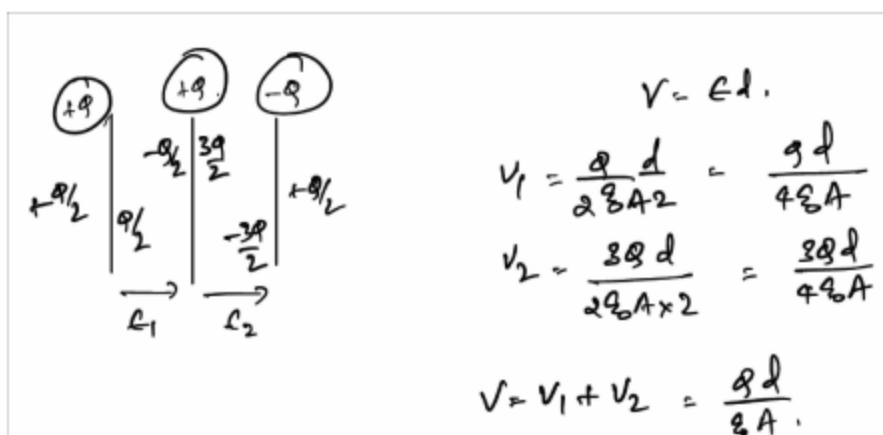 +Q +Q -Q
+Q/2 Q/2 -Q/2 3Q/2 -3Q/2 +Q/2
E₁ E₂
V = Ed.
V₁ = Q d / 2ε₀A 2 = Qd / 4ε₀A
V₂ = 3Q d / 2ε₀A×2 = 3Qd / 4ε₀A
V = V₁ + V₂ = Qd / ε₀A.